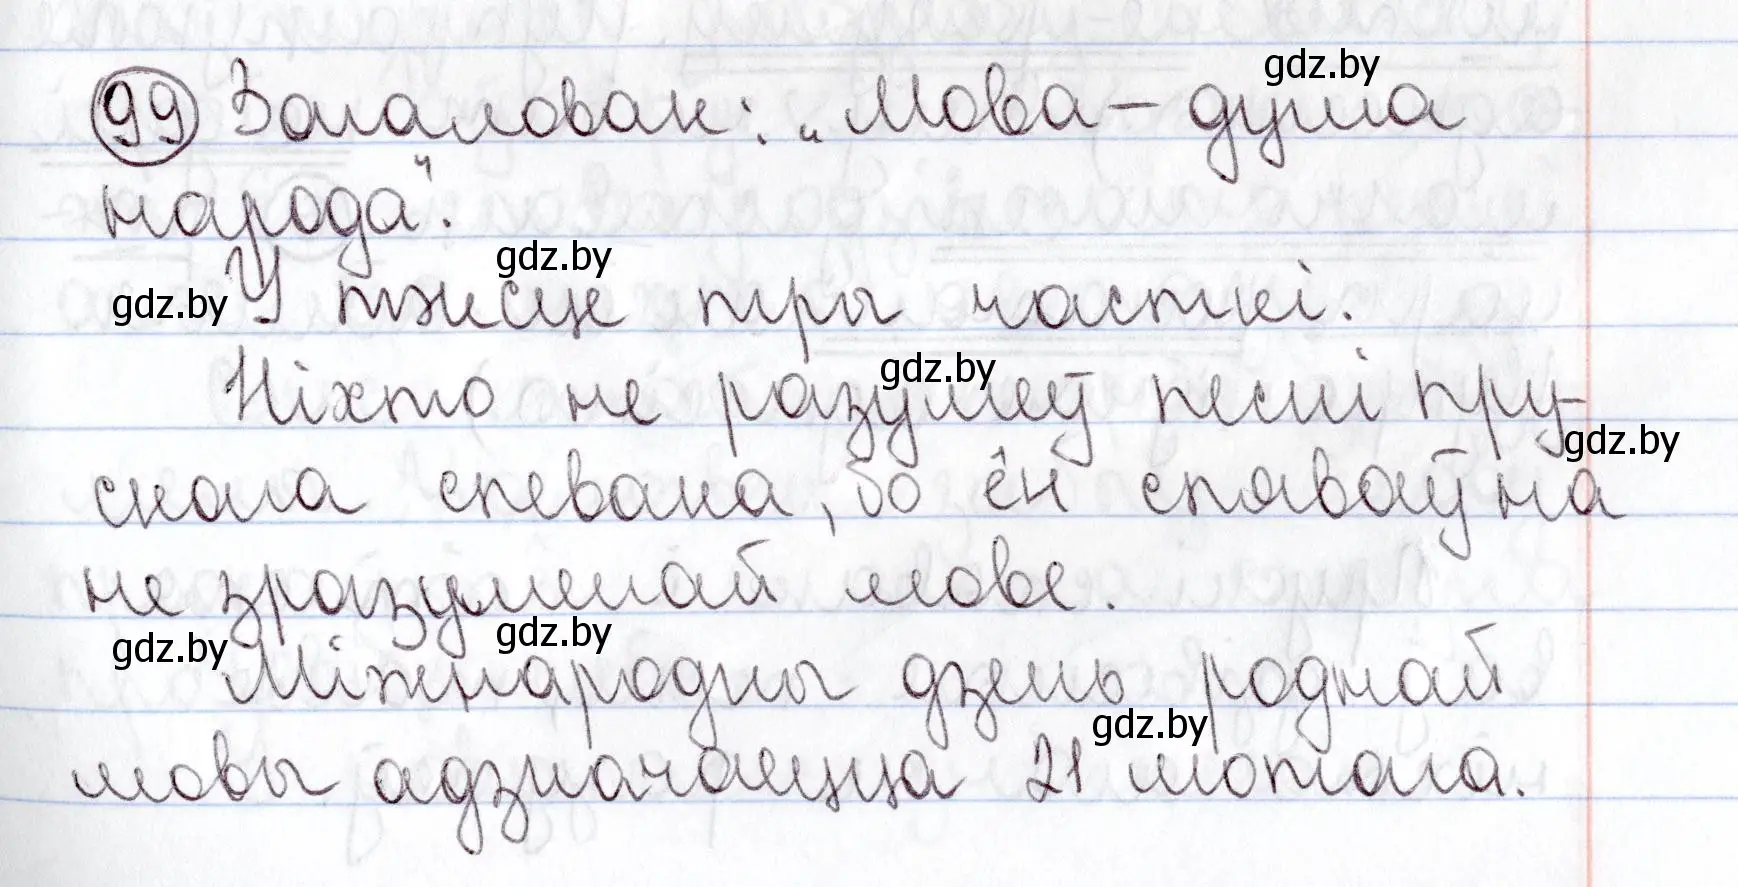 gdz.by
99 Загаловак: „Мова – душа
народа".
gdz.by
gdz.by У тэксце тры часткі.
gdz.by
Ніхто не разумеў песні пру-
gdz.by
скага спевака, бо ён спяваў на
не зразумелай мове.
gdz.by gdz.by
Міжнародны дзень роднай
gdz.by
мовы адзначаецца 21 лютага.